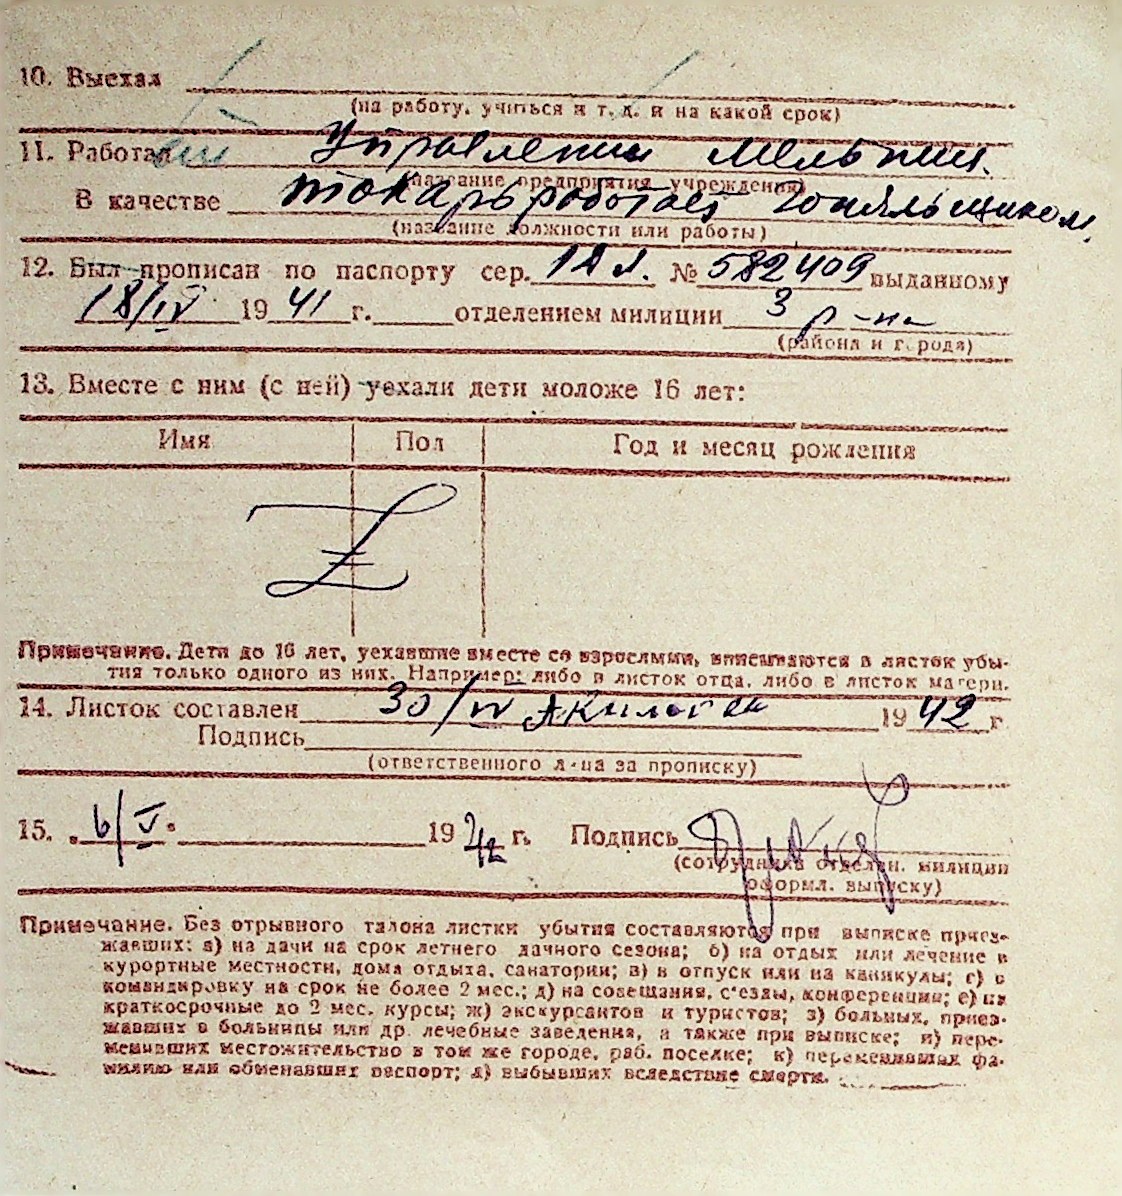 10. Выехал
(на работу, учиться и т. д. и на какой срок)
11. Работал Управлении Мельниц.
(название предприятия учреждения)
В качестве токарь работает
(название должности или работы)
12. Был прописан по паспорту сер. № 582409 выданному
18/IV 1941 г. отделением милиции 3 р-на
(района и города)
13. Вместе с ним (с ней) уехали дети моложе 16 лет:
Имя Пол Год и месяц рождения
Z
Примечание. Дети до 16 лет, уехавшие вместе со взрослыми, вписываются в листок убы-
тия только одного из них. Например: либо в листок отца, либо в листок матери.
14. Листок составлен 30/IV 1942 г
Подпись
(ответственного лица за прописку)
15. 6/V. 1942 г. Подпись
(сотрудника отделен. милиции
оформл. выписку)
Примечание. Без отрывного талона листки убытия составляются при выписке приез-
жавших: а) на дачи на срок летнего дачного сезона; б) на отдых или лечение в
курортные местности, дома отдыха, санатории; в) в отпуск или на каникулы; г) в
командировку на срок не более 2 мес.; д) на совещания, с'езды, конференции; е) на
краткосрочные до 2 мес. курсы; ж) экскурсантов и туристов; з) больных, приез-
жавших в больницы или др. лечебные заведения, а также при выписке; и) пере-
менивших местожительство в том же городе, раб. поселке; к) переменивших фа-
милию или обменявших паспорт; л) выбывших вследствие смерти.